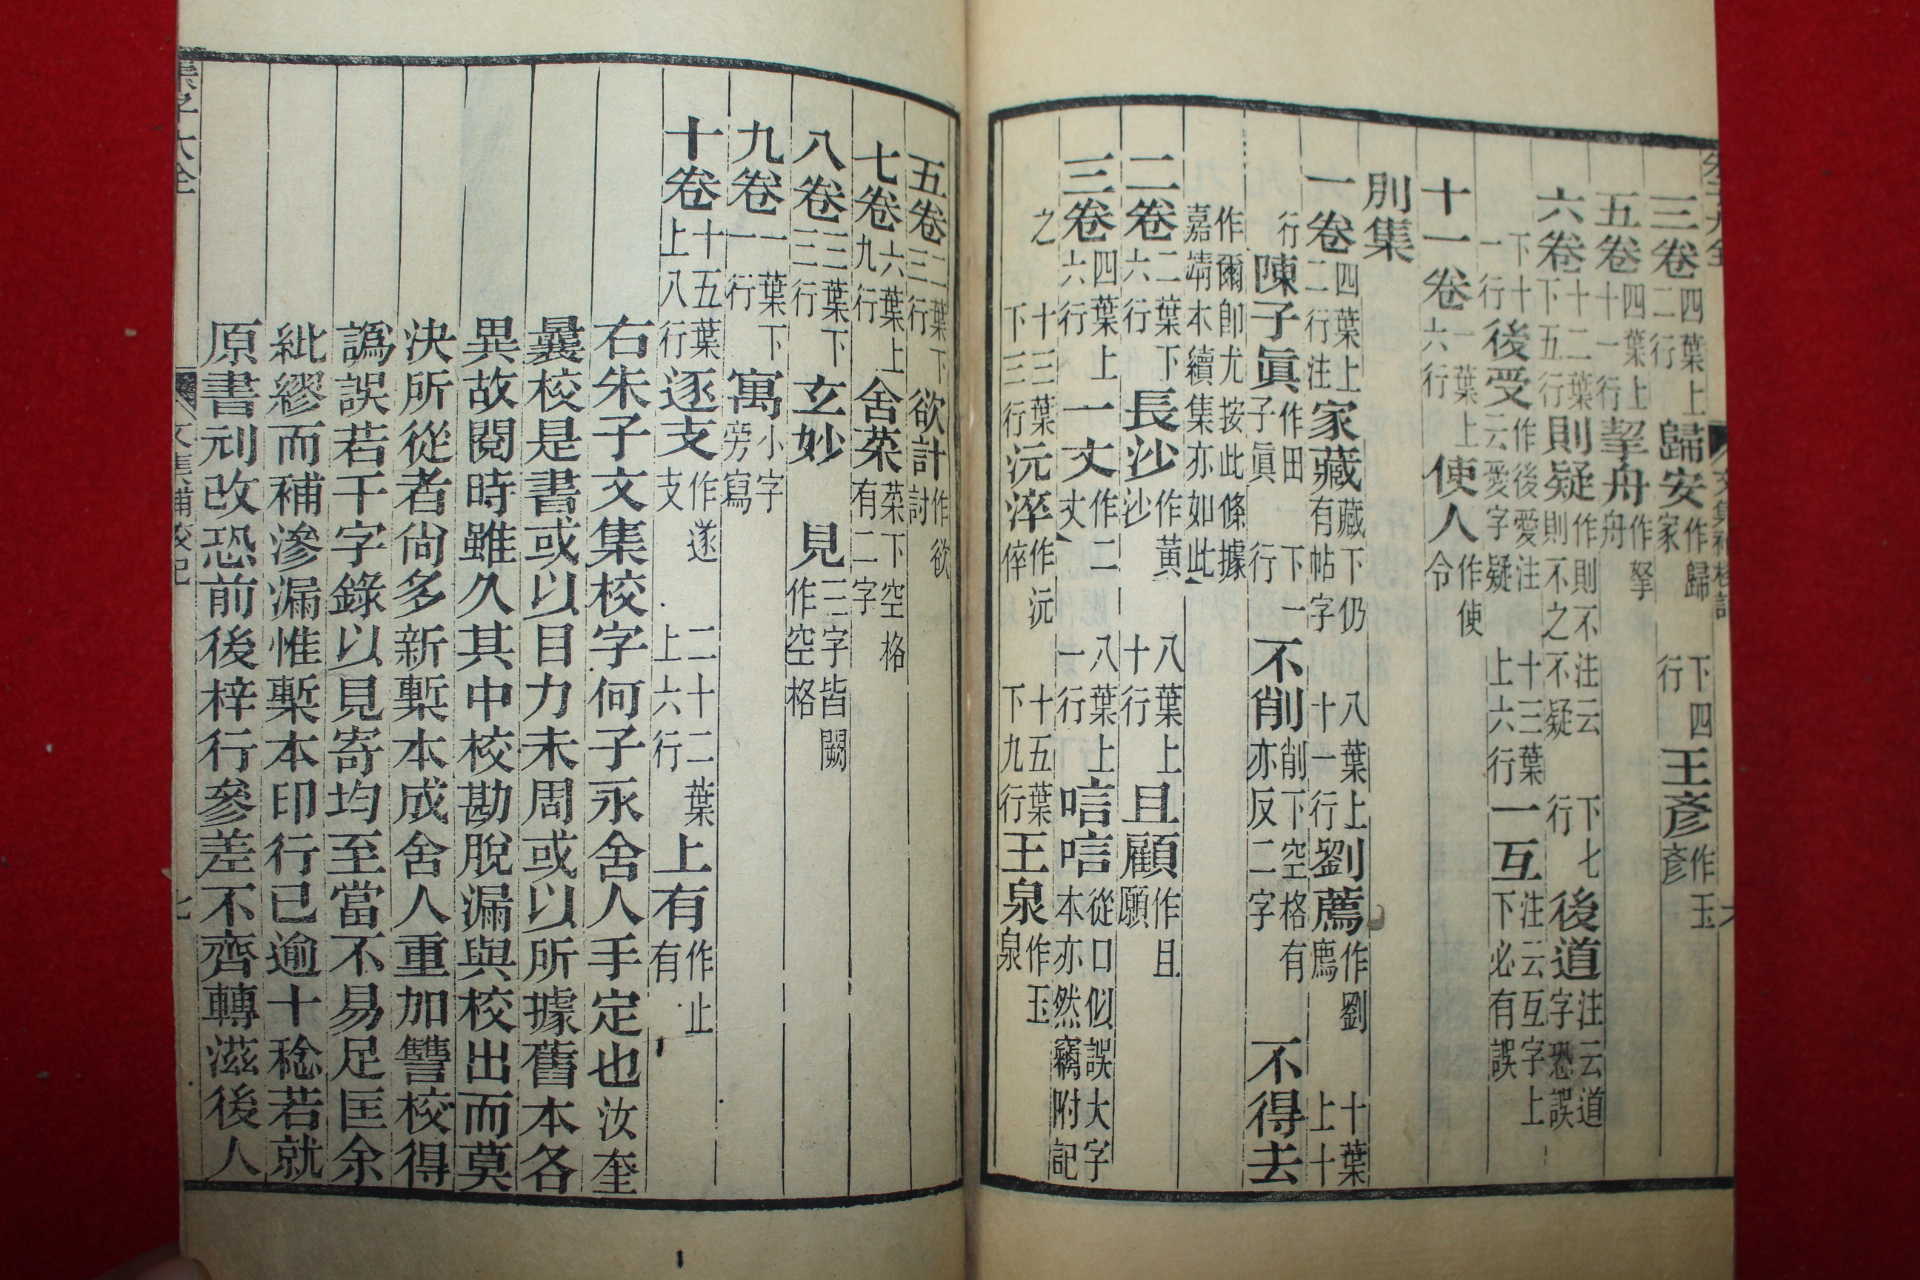 三卷四葉上二行歸安作歸家　下四行王彥作玉彥
五卷四葉上十一行挐舟作拏舟
六卷十二葉下五行則疑作則不疑則不之　下七行後道注云道字恐誤
下十一行後受作後愛注云愛字疑　十三葉上六行一互注云互字上下必有誤
十一卷一葉上六行使人作使令
別集
一卷四葉上二行注家藏藏下仍有帖字　八葉上十一行劉薦作劉廌　十葉上十
行陳子眞作田子眞　下一行不削削下空格有亦反二字　不得去
作爾卽尤按此條據嘉靖本續集亦如此
二卷二葉下六行長沙作黃沙　八葉上十行且顧作且願
三卷四葉上六行一丈作二丈　八葉上一行唁唁從口似誤大字本亦然竊附記
之　十三葉下三行沅淬作沅倅　十五葉下九行王泉作玉泉
五卷三葉下三行欲計作欲討
七卷六葉上九行舍菜菜下空格有二字
八卷三葉下三行玄妙　見三字皆闕作空格
九卷一葉下一行寓小字旁寫
十卷十五葉上八行逐支作遂支　二十二葉上六行上有作止有
右朱子文集校字何子永舍人手定也汝奎
曩校是書或以目力未周或以所據舊本各
異故閱時雖久其中校勘脫漏與校出而莫
決所從者尙多新槧本成舍人重加讐校得
譌誤若干字錄以見寄均至當不易足匡余
紕繆而補滲漏惟槧本印行已逾十稔若就
原書刓改恐前後梓行參差不齊轉滋後人